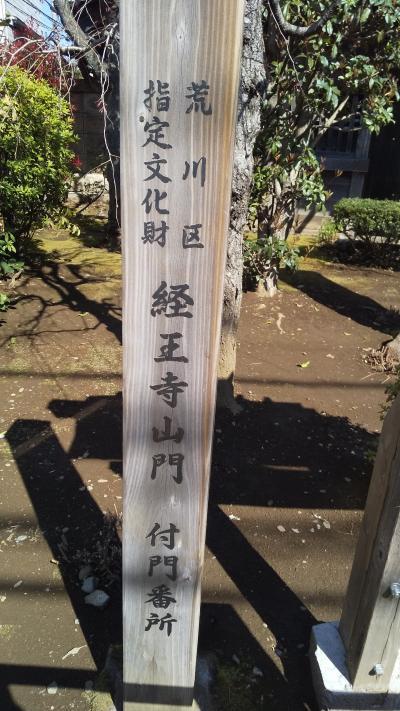 荒川区
指定文化財
経王寺山門
付門番所